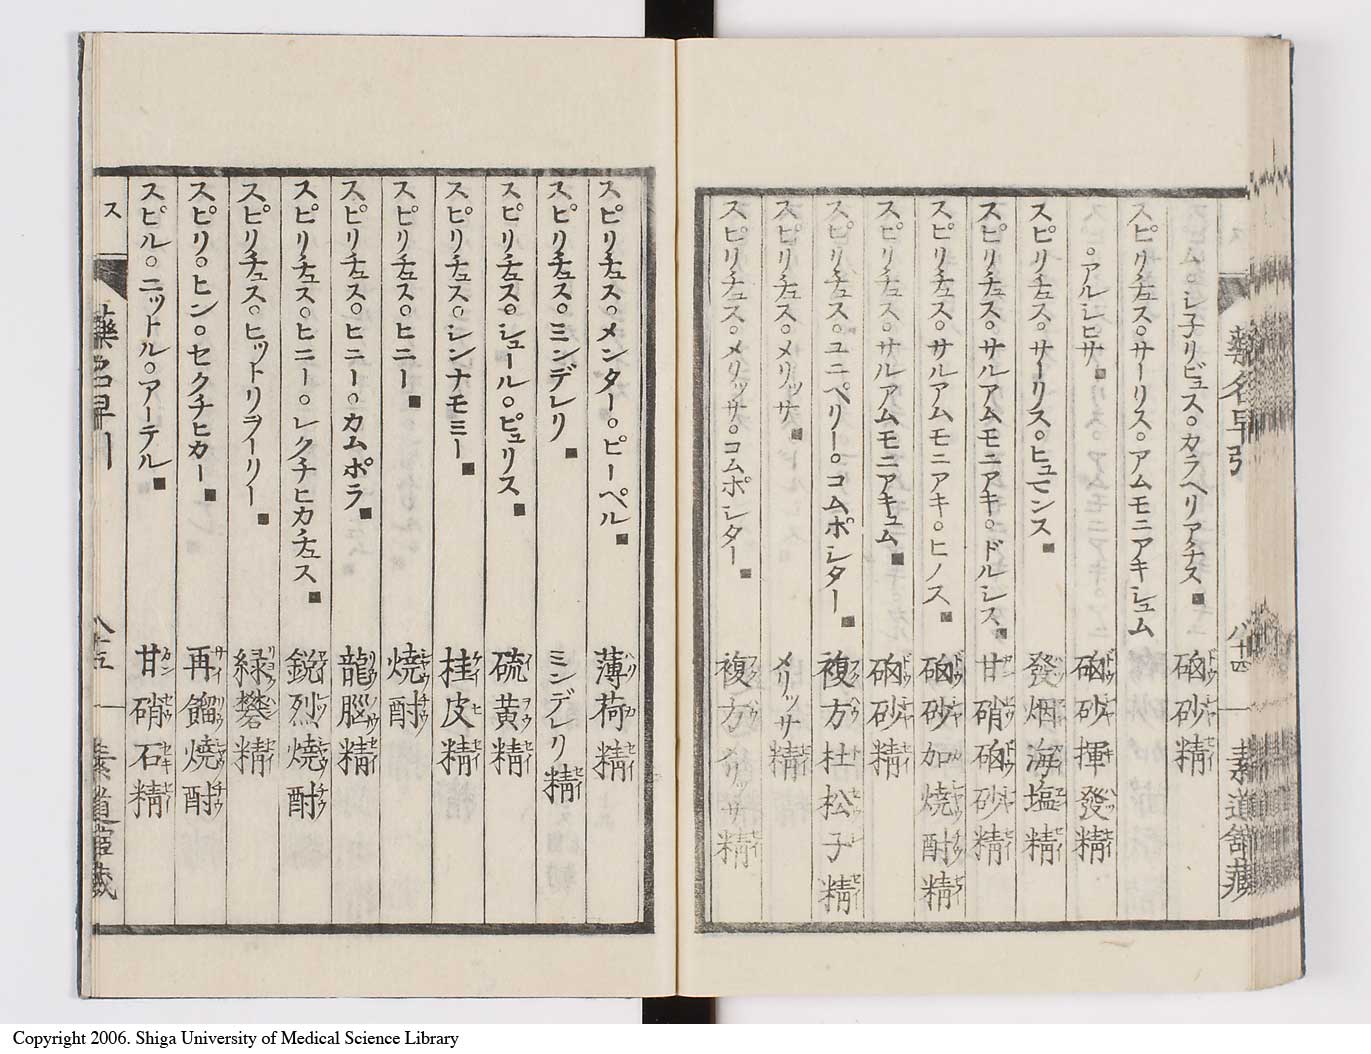 ス
藥名早引
八十四
素道舘藏
スピム。シ子リビュス。カラヘリアチス■ 硇砂精
スピリチュス。サーリス。アムモニアキシュム
。アルシヒサ■ 硇砂揮發精
スピリチュス。サーリス。ヒュモンス■ 發烟海塩精
スピリチュス。サルアムモニアキ。ドルシス■ 甘硝硇砂精
スピリチュス。サルアムモニアキ。ヒノス■ 硇砂加焼酎精
スピリチュス。サルアムモニアキュム■ 硇砂精
スピリチュス。ユニペリー。コムポシター■ 複方杜松子精
スピリチュス。メリッサ■ メリッサ精
スピリチュス。メリッサ。コムポシター■ 複方メリッサ精
スピリチュス。メンター。ピーペル■ 薄荷精
スピリチュス。ミンデレリ■ ミンデレリ精
スピリチュス。シュール。ピュリス■ 硫黄精
スピリチュス。シンナモミー■ 桂皮精
スピリチュス。ヒニー■ 焼酎
スピリチュス。ヒニー。カムポラ■ 龍腦精
スピリチュス。ヒニー。レクチヒカチュス■ 鋭烈焼酎
スピリチュス。ヒットリヲーリー■ 緑礬精
スピリ。ヒン。セクチヒカー■ 再餾焼酎
スピル。ニットル。アーテル■ 甘硝石精
ス
藥名早引
八十五
Copyright 2006. Shiga University of Medical Science Library